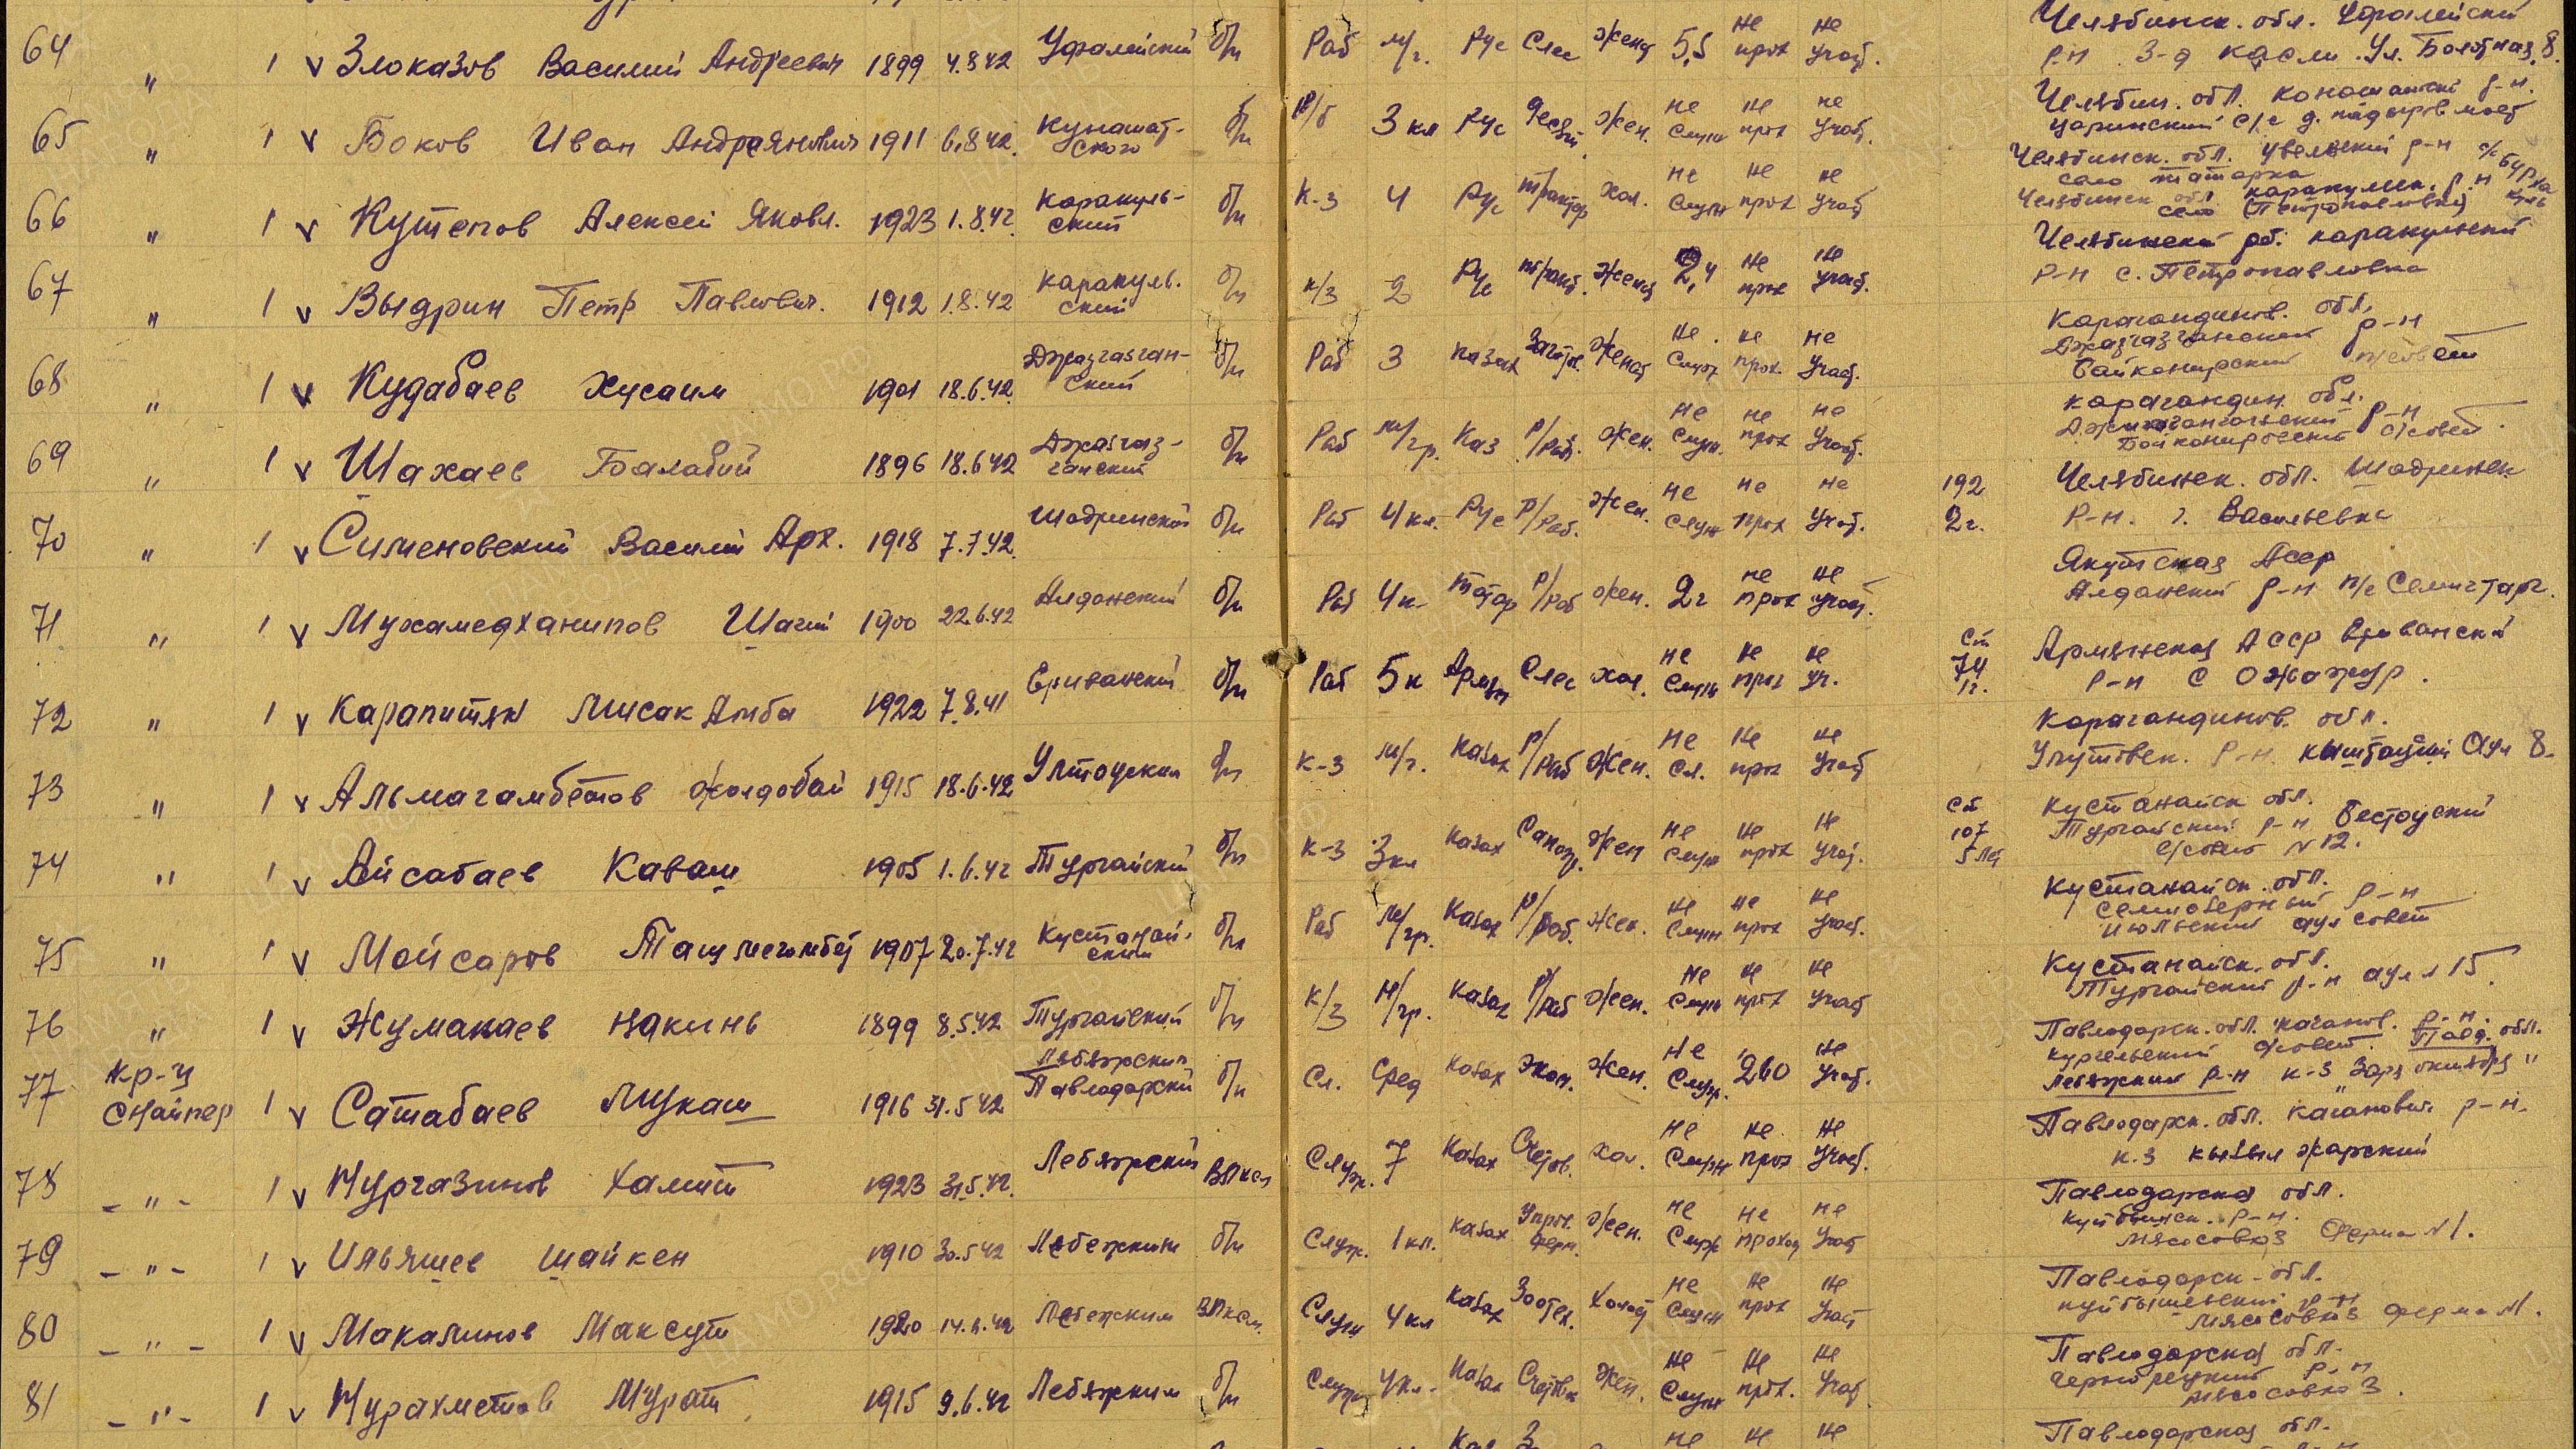 64 " 1 v Злоказов Василий Андреевич 1899 4.8.42 Уфалейский б/п Раб м/г. Рус Слес Жена 5,5 не прох не учас. Челябинск. обл. Уфалейский р-н З-д Касли Ул. Болотная 8.
65 " 1 v Боков Иван Андреянович 1911 6.8.42 Кунашакского б/п 3 кл Рус Жен. не служ не прох не учас. Челябин. обл. р-н.
66 " 1 v Кутепов Алексей Яковл. 1923 1.8.42 Каракульский б/п К-З 4 Рус трактор хол. не служ не прох не учас Челябинск. обл. Увельский р-н Челябинск обл каракульск. р-н село Петропавловка
67 " 1 v Выдрин Петр Павлович. 1912 1.8.42 Каракульский б/п к/з 2 Рус тракт. Женат 2,4 не прох не учас. Челябинской об. каракульский р-н с. Петропавловка
68 " 1 v Кудабаев Хусаим 1901 18.6.42 Джазгазганский б/п Раб 3 казах Женат не служ не прох. не учас. Карагандинов. обл. Джазгазганский р-н Байконурский п/совет
69 " 1 v Шахаев Балабий 1896 18.6.42 Джазгазганский б/п Раб м/гр. Каз р/раб. Жен. не служ. не прох не учас. Карагандин. обл. р-н Байконуровский с/совет.
70 " 1 v Сименовский Василий Арх. 1918 7.7.42 Шадринской б/п Раб 4 кл. Рус р/раб. Жен. не служ не прох не учас. 192 2г. Челябинск. обл. Шадринск. р-н. Васильевка
71 " 1 v Мухамедханипов Шагий 1900 22.6.42 Алданский б/п Раб 4 к. татар р/раб жен. 2 г не прох не учас. Якутская Асср Алданский р-н п/с
72 " 1 v Карапитян Мисак Амба 1922 7.8.41 Ериванский б/п Раб 5 к Армян Слес хол. не служ не прох не уч. Ст 74 1г. Армянская АССР Ериванский р-н с
73 " 1 v Альмагамбетов Жолдобай 1915 18.6.42 Улитауский б/п К-З м/г. казах р/раб Жен. не сл. не прох не учас Карагандинов. обл. р-н. Аул 8.
74 " 1 v Айсабаев Каваш 1905 1.6.42 Тургайский б/п К-З 3 кл казах Сапож. Жен не служ не прох не учас. Ст 107 5 лет Кустанайск обл. Тургайский р-н Бестауский с/совет N 12.
75 " 1 v Мойсаров 1907 20.7.42 Кустанайский б/п Раб м/гр. казах р/раб. жен. не служ не прох не учас. Кустанайск. обл. Семиозерный р-н июльский аул совет
76 " 1 v Жумакаев Накинь 1899 8.5.42 Тургайский б/п к/з н/гр. казах р/раб жен. не служ не прох не учас Кустанайск. обл. Тургайский р-н аул 15.
77 к-р-ц снайпер 1 v Сатабаев Мукаш 1916 31.5.42 Лебяжский Павлодарский б/п Сл. Сред казах Экон. Жен. не служ. 260 не учас. Павлодарск. обл. Каганов. р-н. с/совет. Павл. обл. Лебяжский р-н к-з "Заря октября"
78 - " - 1 v Нургазинов Хамит 1923 31.5.42. Лебяжский ВЛКСМ Служ. 7 казах Счетов. хол. не служ не прох не учас. Павлодарск. обл. Каганович р-н. к-з кызыл жарский
79 - " - 1 v Ильяшев Шайкен 1910 30.5.42 Лебежский б/п Служ. 1 кл. казах Управ. ферм. Жен. не служ не проход не учас Павлодарская обл. Куйбышск. р-н. Мясосовхоз Ферма N 1.
80 - " - 1 v Макалинов Максут 1920 14.6.42 Лебежский ВЛКСМ. Служ 4 кл казах Зоотех. Холост не служ не прох не учас Павлодарск. обл. куйбышевский р-н мясосовхоз ферма N 1.
81 - " - 1 v Нурахметов Мурат 1915 9.6.42 Лебяжский б/п Служ 4 кл. казах Счетов Жен. не служ не прох. не учас Павлодарской обл. Чернорецкий р-н мясосовхоз.
Каз не не не Павлодарская обл.